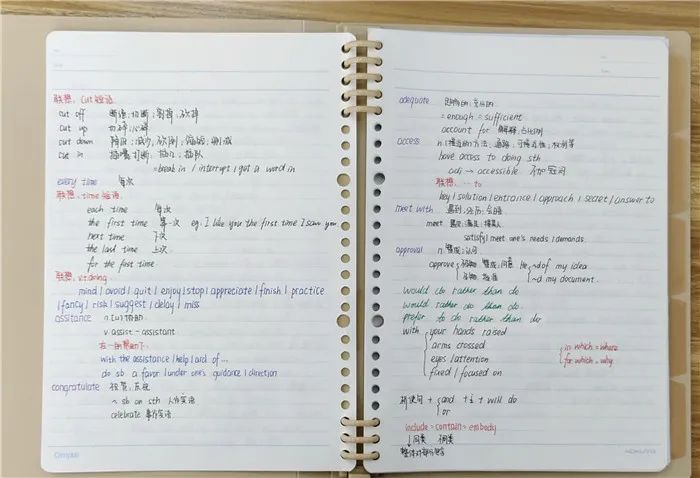 联想：cut 短语
cut off 断绝；切断；剪掉；砍掉
cut up 切碎；心碎
cut down 降低；减少；砍倒；缩短；删减
cut in 插嘴；打断；插入；插队
=break in / interrupt / get a word in
every time 每次
联想：time 短语
each time 每次
the first time 第一次 eg. I like you the first time I saw you.
next time 下次
the last time 上次
for the first time
联想：v.+doing
mind / avoid / quit / enjoy / stop / appreciate / finish / practice
/ fancy / risk / suggest / delay / miss
assitance n.[u]
v. assist - assistant
在…的帮助下：
with the assistance / help / aid of ...
do sb a favor / under one's guidance / direction
congratulate 祝贺；庆祝
~ sb on sth 人作宾语
celebrate 事作宾语
Campus
adequate 足够的；充分的
= enough = sufficient
account for 解释；占比例
access n. 接近的方法；通路；可接近性；权利等
have access to doing sth
adj → accessible
联想：… to
key / solution / entrance / approach / secret / answer to
meet with 遇到；
meet 遇见；满足；
satisfy / meet one's needs / demands
approval n. 赞成；认可
approve 赞成；同意 he ~d of my idea
批准 ~d my document.
would do rather than do
would rather do than do
prefer to do rather than do
with your hands raised
arms crossed
eyes / attention
fixed / focused on
in which = where
for which = why
祈使句 + and + + will do
or
include = contain = embody
↓同类
整体对部分包含
KOKUYO